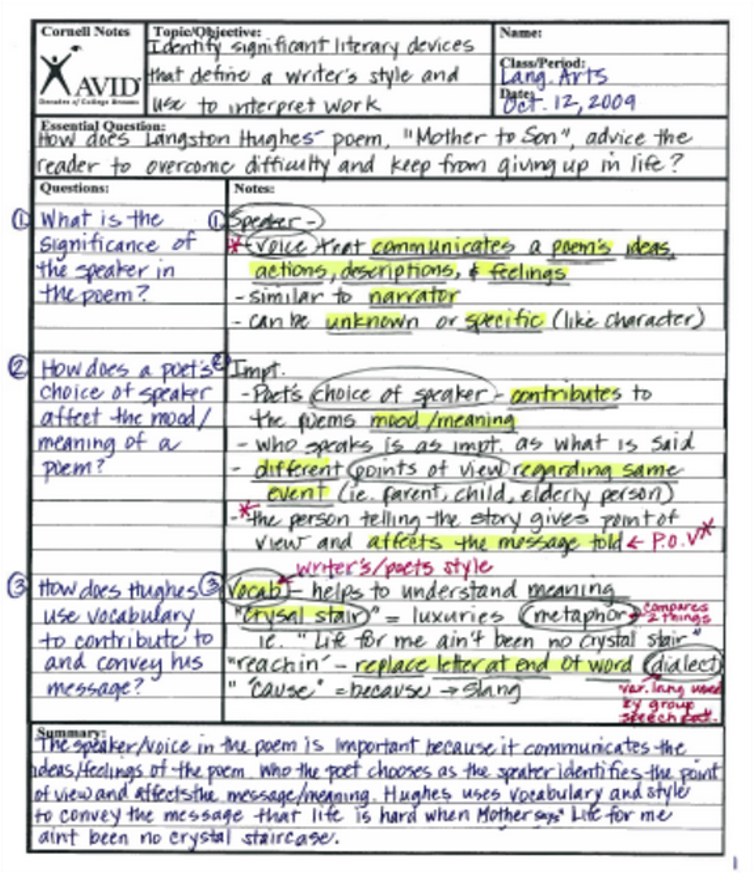 Cornell Notes
AVID
Decades of College Dreams
Topic/Objective:
Identify significant literary devices
that define a writer's style and
use to interpret work
Name:
Class/Period:
Lang. Arts
Date:
Oct. 12, 2009
Essential Question:
How does Langston Hughes' poem, "Mother to Son", advice the
reader to overcome difficulty and keep from giving up in life?
Questions:
① What is the
significance of
the speaker in
the poem?
② How does a poet's
choice of speaker
affect the mood/
meaning of a
poem?
③ How does Hughes
use vocabulary
to contribute to
and convey his
message?
Notes:
① Speaker -
* - voice that communicates a poem's ideas,
actions, descriptions, & feelings
- similar to narrator
- can be unknown or specific (like character)
② Impt.
- Poet's choice of speaker - contributes to
the poems mood/meaning
- who speaks is as impt. as what is said
- different points of view regarding same
event (ie. parent, child, elderly person)
- * the person telling the story gives point of
view and affects the message told ← P.O.V *
writer's/poets style
③ Vocab - helps to understand meaning
"crysal stair" = luxuries (metaphor) → compares
2 things
ie. "Life for me ain't been no crystal stair"
"reachin' - replace letter at end of word (dialect)
" 'cause" = because → slang
var. lang used
by group
speech pat.
Summary:
The speaker/voice in the poem is important because it communicates the
ideas/feelings of the poem. Who the poet chooses as the speaker identifies the point
of view and affects the message/meaning. Hughes uses vocabulary and style
to convey the message that life is hard when Mother says "Life for me
aint been no crystal staircase.
1